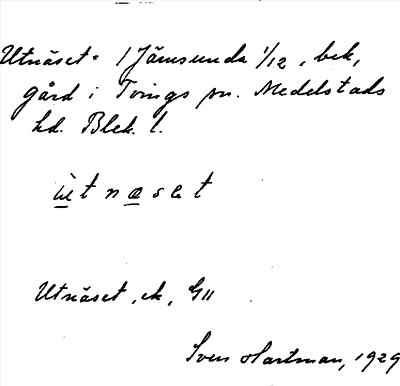 Utnäset = 1 Jämsunda 1/12, bek,
gård i Tvings sn. Medelstads
hd. Blek. l.
ùtnæset
Utnäset, ek, G11
Sven Hartman, 1929